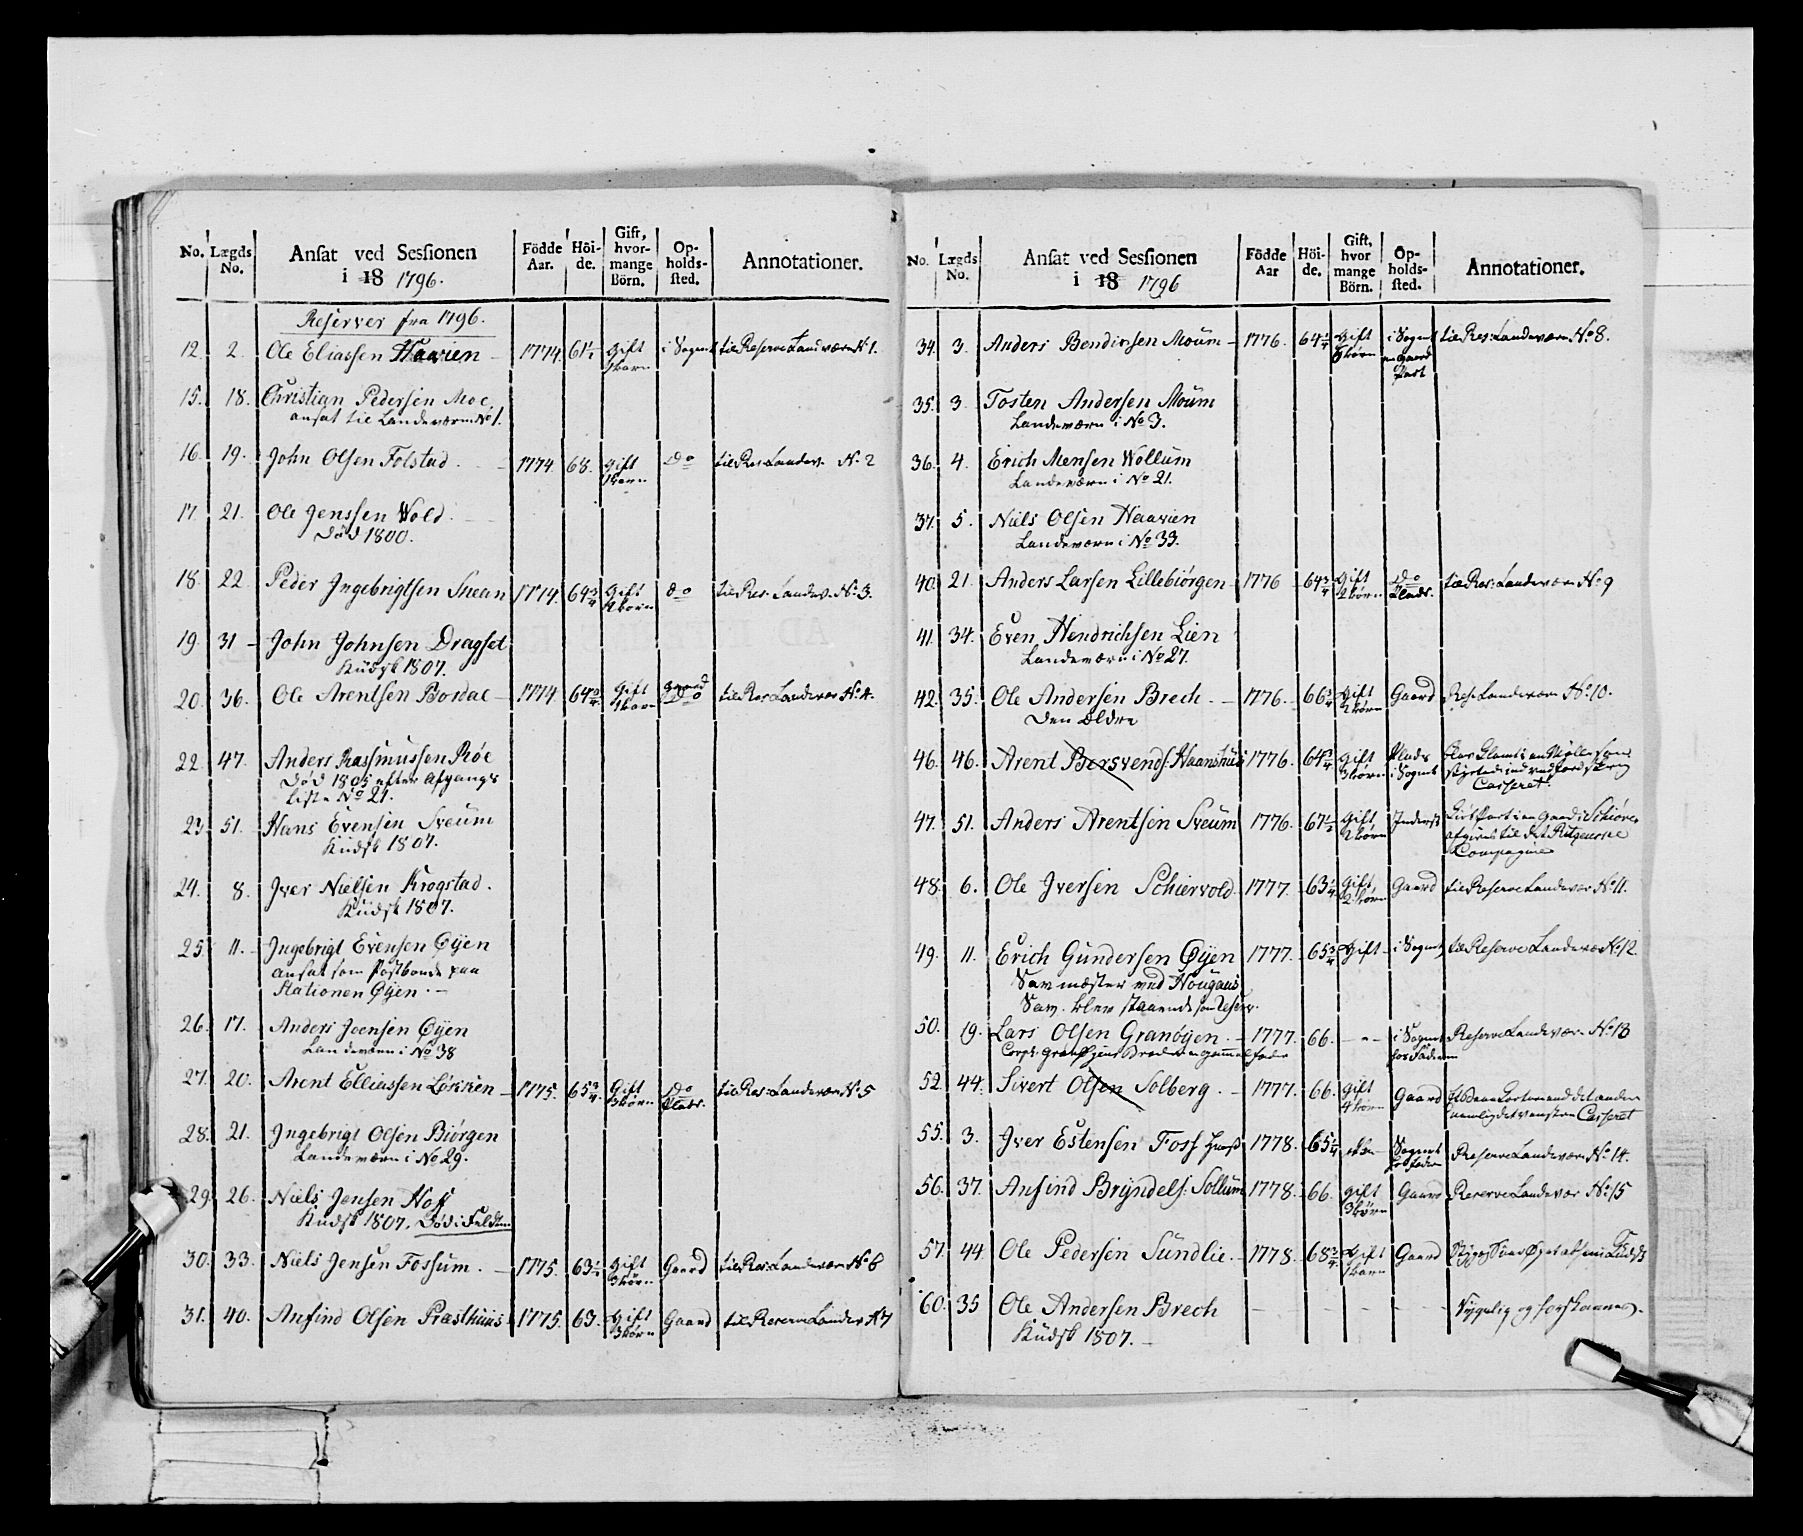 No. Lægds No. Ansat ved Sessionen i 18 1796. Födde Aar. Höi-de. Gift, hvor-mange Börn. Op-holds-sted. Annotationer.
Reserver fra 1796.
12. 2. Ole Eliassen Haavien - 1774. 61½ Gift 1 barn i Sognet til Reserve Landværn No 1.
15. 18. Christian Pedersen Moe
ansat til Landeværn No 1.
16. 19. John Olsen Folstad. - 1774 68. gift 1 barn Do til Res. Landev. No. 2
17. 21. Ole Jenssen Wold.
Död 1800.
18. 22. Peder Ingebrigtsen Snean 1774. 64¾ Gift 2 börn do til Res. Landev. No. 3.
19. 31 - John Johnsen Dragset
Kudsk 1807.
20. 36. Ole Arentsen Bordal - 1774 64 Gift 1 barn gaard Do til Res. Landevær No. 4.
22. 47. Anders Rasmussen Röe
Död 1805 efter Afgangs
Liste No 21.
23. 51. Hans Evensen Sveum
Kudsk 1807.
24. 8. Iver Nielsen Krogstad.
Kudsk 1807.
25. 11. Ingebrigt Evensen Öyen
ansat som Postbonde paa
Stationen Öyen. -
26. 17. Anders Joensen Öyen
Landeværn i No 38
27. 20. Arent Elliassen Løkken - 1775. 65¾ Gift 3 börn Do Plads. til Res. Landeværn No. 5
28. 21. Ingebrigt Olsen Biörgen
Landeværn i No 29.
29. 26. Niels Jensen Hoff
Kudsk 1807. Död i Felden
30. 33. Niels Jensen Fossum. - 1775. 63½ Gift 3 börn Gaard til Res. Landeværn No. 6
31. 40. Anfind Olsen Præsthuus 1775. 63. Gift 3 börn Gaard til Reserve Landev N 7
No. Lægds No. Ansat ved Sessionen i 18 1796 Födde Aar Höi-de. Gift, hvor mange Börn. Op-holds-sted. Annotationer.
34. 3. Anders Bendixsen Moum - 1776. 64¼ Gift börn i Sognet en gaard Part til Res: Landeværn No 8.
35. 3. Tosten Andersen Moum
Landeværn i No 3.
36. 4. Erich Mensen Wollum
Landeværn i No 21.
37. 5. Niels Olsen Haavien
Landeværn i No 33.
40. 21. Anders Larsen Lillebiörgen - 1776 64¾ Gift 2 börn Do Plads. til Res: Landeværn No 9
41. 34. Even Hendrichsen Lien
Landeværn i No 27.
42. 35. Ole Andersen Brech. - 1776. 66¾ Gift 2 börn Gaard Res. Landeværn No. 10.
Den Eldre
46. 46. Arent Bersvends: Haanshuus 1776. 64¾ Gift 3 börn Plads i Sognet
Casseret.
47. 51. Anders Arentsen Sveum 1776. 67½ Gift 2 börn Inderst Part i en Gaard i
afgivet til det
Compagnie
48. 6. Ole Iversen Schiervold 1777. 63¼ Gift 2 börn Gaard til Reserve Landevær No 11.
49. 11. Erich Gundersen Öyen 1777. 65¾ Gift - i Sognet til Reserve Landevær No. 12.
Savmæster ved Hougans
Sav. blev staaende som Reserv.
50. 19. Lars Olsen Granöyen. - 1777. 66. - - - i Sognet hos Faderen Reserve Landeværn No 13
52. 44. Sivert Olsen Solberg. - 1777. 66. Gift 4 börn Gaard
Casseret
55. 3. Iver Estensen Foss 1778. 65¼ Sognet Reserve Landeværn No. 14.
56. 37. Anfind Bryndels: Sollum 1778. 66. gift 3 börn Gaard Reserve Landevær No. 15
57. 44. Ole Pedersen Sundlie. - 1778. 68¾ Gift 1 barn Gaard
60. 35 Ole Andersen Brech - - - - Sygelig og
Kudsk 1807. -